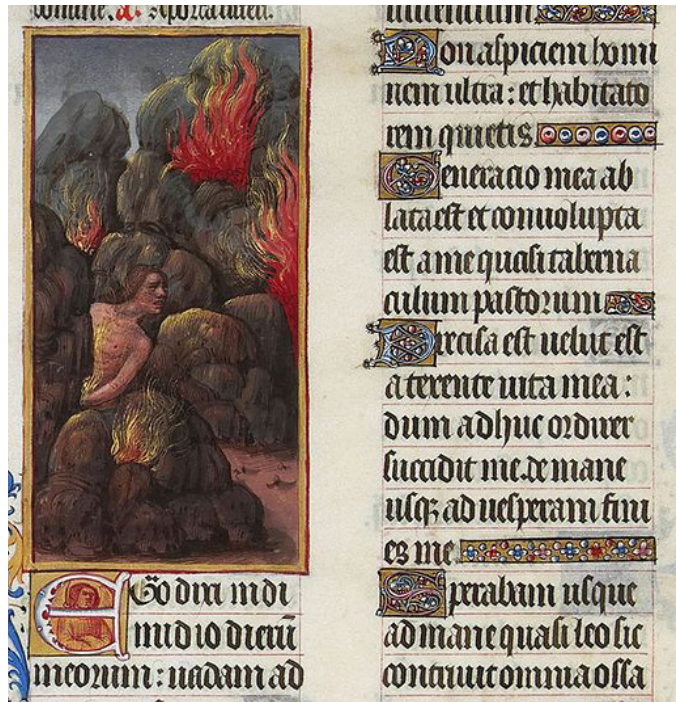 domine. a. A porta inferi.
Ego dixi in di
midio dierū
meorum: uadam ad
uiuentium
Non aspiciem homi
nem ultra: et habitato
rem quietis.
Generacio mea ab
lata est et conuolupta
est a me quasi taberna
culum pastorum
Precisa est uelut est
a texente uita mea:
dum adhuc ordirer
succidit me. de mane
usqꝫ ad uesperam fini
es me
Sperabam usque
ad mane quasi leo sic
contriuit omnia ossa